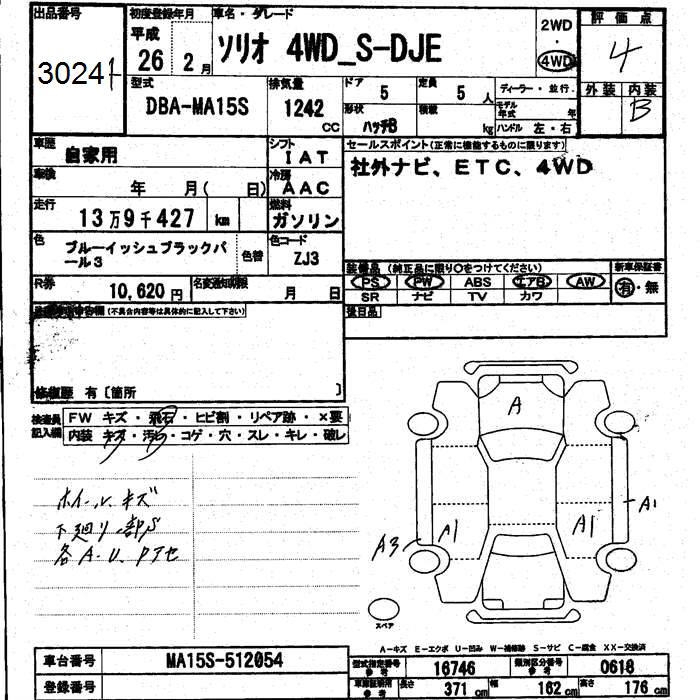 出品番号
30241
初度登録年月
平成
26 2 月
車名・グレード
ソリオ 4WD_S-DJE
2WD
・
4WD
評価点
4
外装 内装
B
型式
DBA-MA15S
排気量
1242
CC
ドア
5
定員
5 人
形状
ハッチB
積載
kg
ディーラー・並行.
モデル年式 年
ハンドル 左・右
車歴
自家用
シフト
IAT
車検
年 月( 日)
冷房
AAC
走行
13万9千427 km
燃料
ガソリン
色
ブルーイッシュブラックパ
ール3
色替
色コード
ZJ3
R券
10,620 円
名変通知期限
月 日
セールスポイント(正常に機能するものに限ります)
社外ナビ、ETC、4WD
装備品 (純正品に限り○をつけてください)
PS PW ABS エアB AW
SR ナビ TV カワ
新車保証書
有・無
後日品
(不具合内容等は具体的に記入して下さい)
修復歴 有〔箇所 〕
検査員
記入欄
FW キズ・飛石・ヒビ割・リペア跡・×要
内装 キズ・汚れ・コゲ・穴・スレ・キレ・破レ
ホイールキズ
下廻り部S
各A-U、アセ
A
A1
A1
A1
A3
スペア
A−キズ E−エクボ U−凹み W−補修跡 S−サビ C−腐食 XX−交換済
車台番号
MA15S-512054
登録番号
型式指定番号
参考
16746
類別区分番号
参考
0618
車庫証明用
参考
長さ
371 cm
幅
162 cm
高さ
176 cm